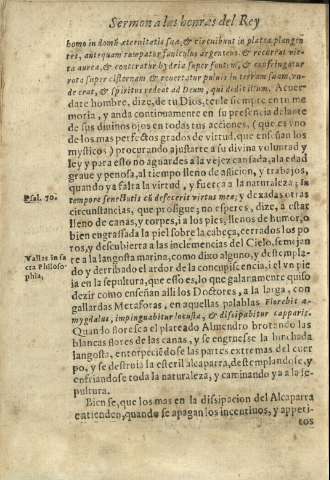 Sermon a las honras del Rey
homo in domũ æternitatis suæ, & circuibunt in platea plangen
tes, antequam rumpatur funiculus argenteus, & recurrat vit-
ta aurea, & conteratur hydria super fontem, & confringatur
rota super cisternam & revertatur pulvis in terram suam, vn-
de erat, & spiritus redeat ad Deum, qui dedit illum. Acuer-
date hombre, dize, de tu Dios, tenle siempre en tu me
moria, y anda continuamente en su presencia delante
de sus divinos ojos en todas tus acciones, (que es vno
de los mas perfectos grados de virtud, que enseñan los
mysticos) procurando ajustarte a su divina voluntad y
ley y para esto no aguardes a la vejez cansada, a la edad
grave y penosa, al tiempo lleno de aficion, y trabajos,
quando ya falta la virtud, y fuerça a la naturaleza; in
Psal. 70.
tempore senectutis cũ defecerit virtus mea; y dexadas otras
circunstancias, que prosigue, no esperes, dize, a estar
lleno de canas, y torpes, a los pies, llenos de humor, o
bien engrassada la piel sobre la cabeça, cerrados los po
ros, y descubierta a las inclemencias del Cielo, semejan
Valles in sa
cra Philoso-
phia,
te a la langosta marina, como dixo alguno, y destempla-
do y derribado el ardor de la concupiscencia, i el vn pie
ya en la sepultura, que esso es, lo que galanamente quiso
dezir como enseñan alli los Doctores, a la larga, con
gallardas Metaforas, en aquellas palablas Florebit a-
mygdalus, impinguabitur locusta, & dissipabitur capparis.
Quando floresca el plateado Almendro brotando las
blancas flores de las canas, y se engruesse la hinchada
langosta, entorpeciẽdose las partes extremas del cuer
po, y se destruia la esteril alcaparra, destemplandose, y
enfriandose toda la naturaleza, y caminando ya a la se-
pultura.
Bien se, que los mas en la dissipacion del Alcaparra
entienden, quando se apagan los incentivos, y appeti
tos